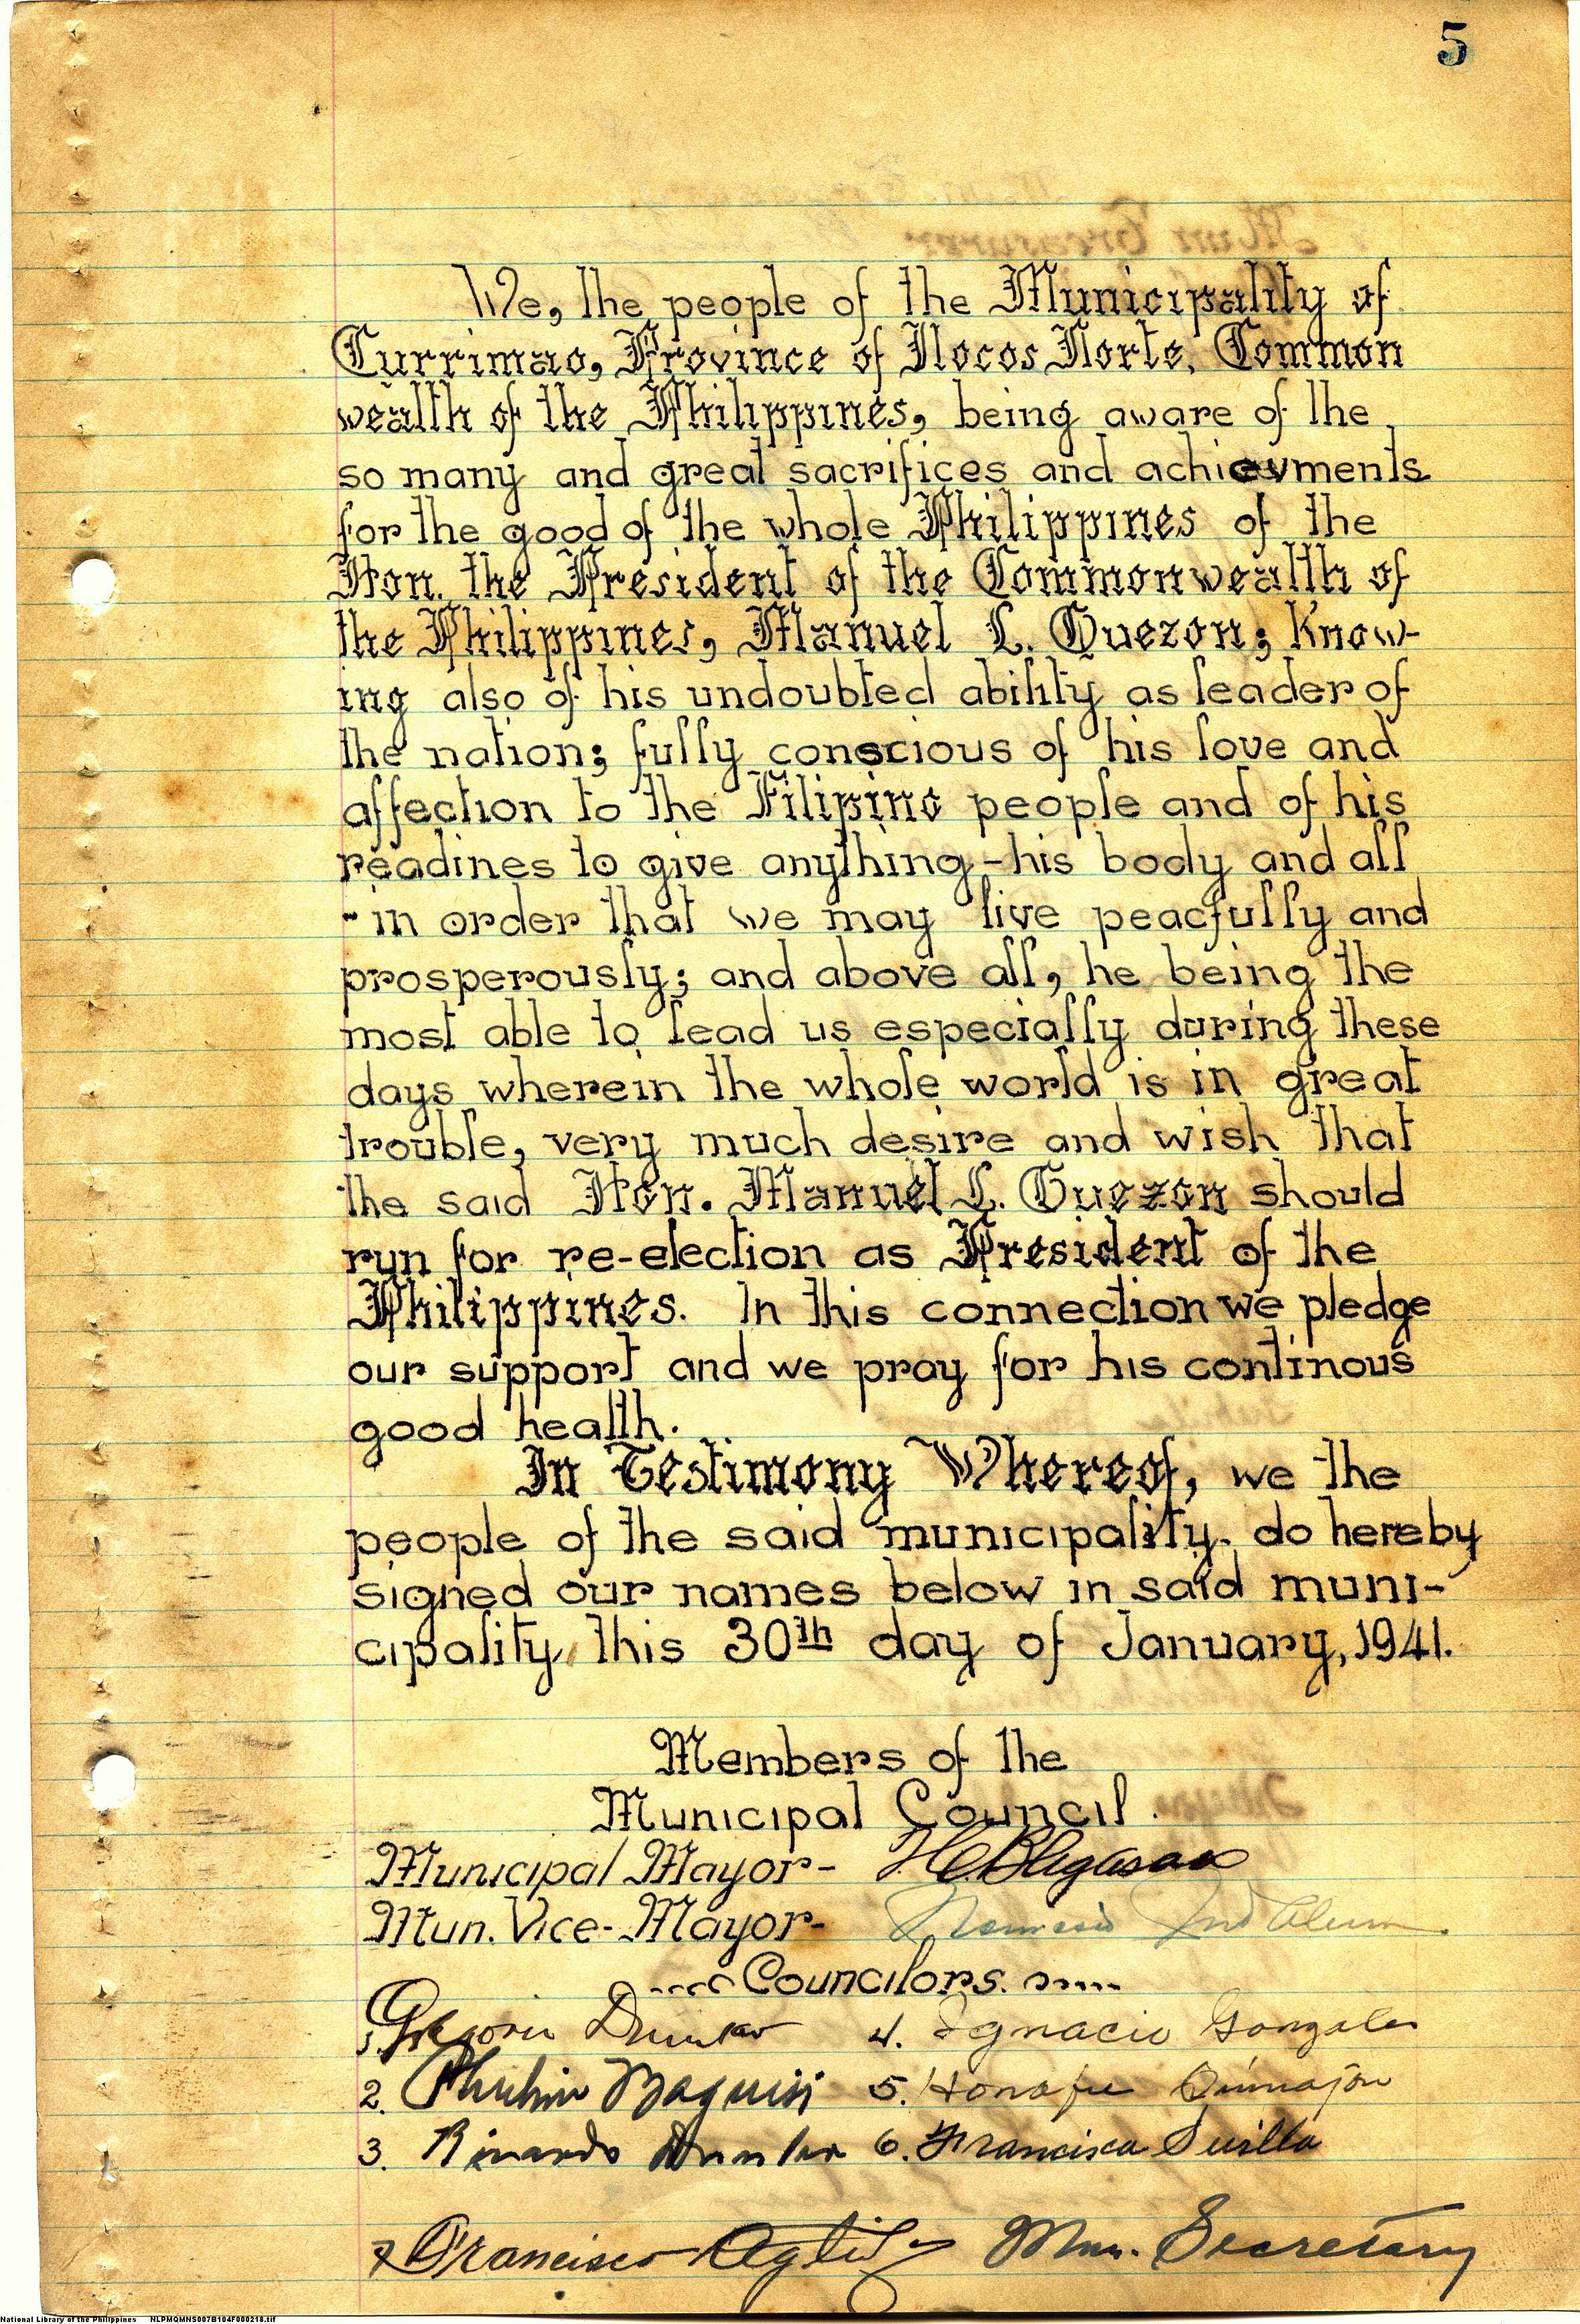 5
We, the people of the Municipality of
Currimao, Province of Ilocos Norte, Common
wealth of the Philippines, being aware of the
so many and great sacrifices and achievments
for the good of the whole Philippines of the
Hon. the President of the Commonwealth of
the Philippines, Manuel L. Quezon; know-
ing also of his undoubted ability as leader of
the nation; fully conscious of his love and
affection to the Filipino people and of his
readines to give anything - his body and all
- in order that we may live peacfully and
prosperously; and above all, he being the
most able to lead us especially during these
days wherein the whole world is in great
trouble, very much desire and wish that
the said Hon. Manuel L. Quezon should
run for re-election as President of the
Philippines. In this connection we pledge
our support and we pray for his continous
good health.
In Testimony Whereof, we the
people of the said municipality, do hereby
signed our names below in said muni-
cipality, this 30th day of January, 1941.
Members of the
Municipal Council.
Municipal Mayor-
Mun. Vice-Mayor- Nemesio
Councilors.
1. Gregorio 4. Ignacio Gonzales
2. 5.
3. Ricardo 6. Francisca
7 Francisco Mun. Secretary
National Library of the Philippines NLPMQMNS007B104F000218.tif